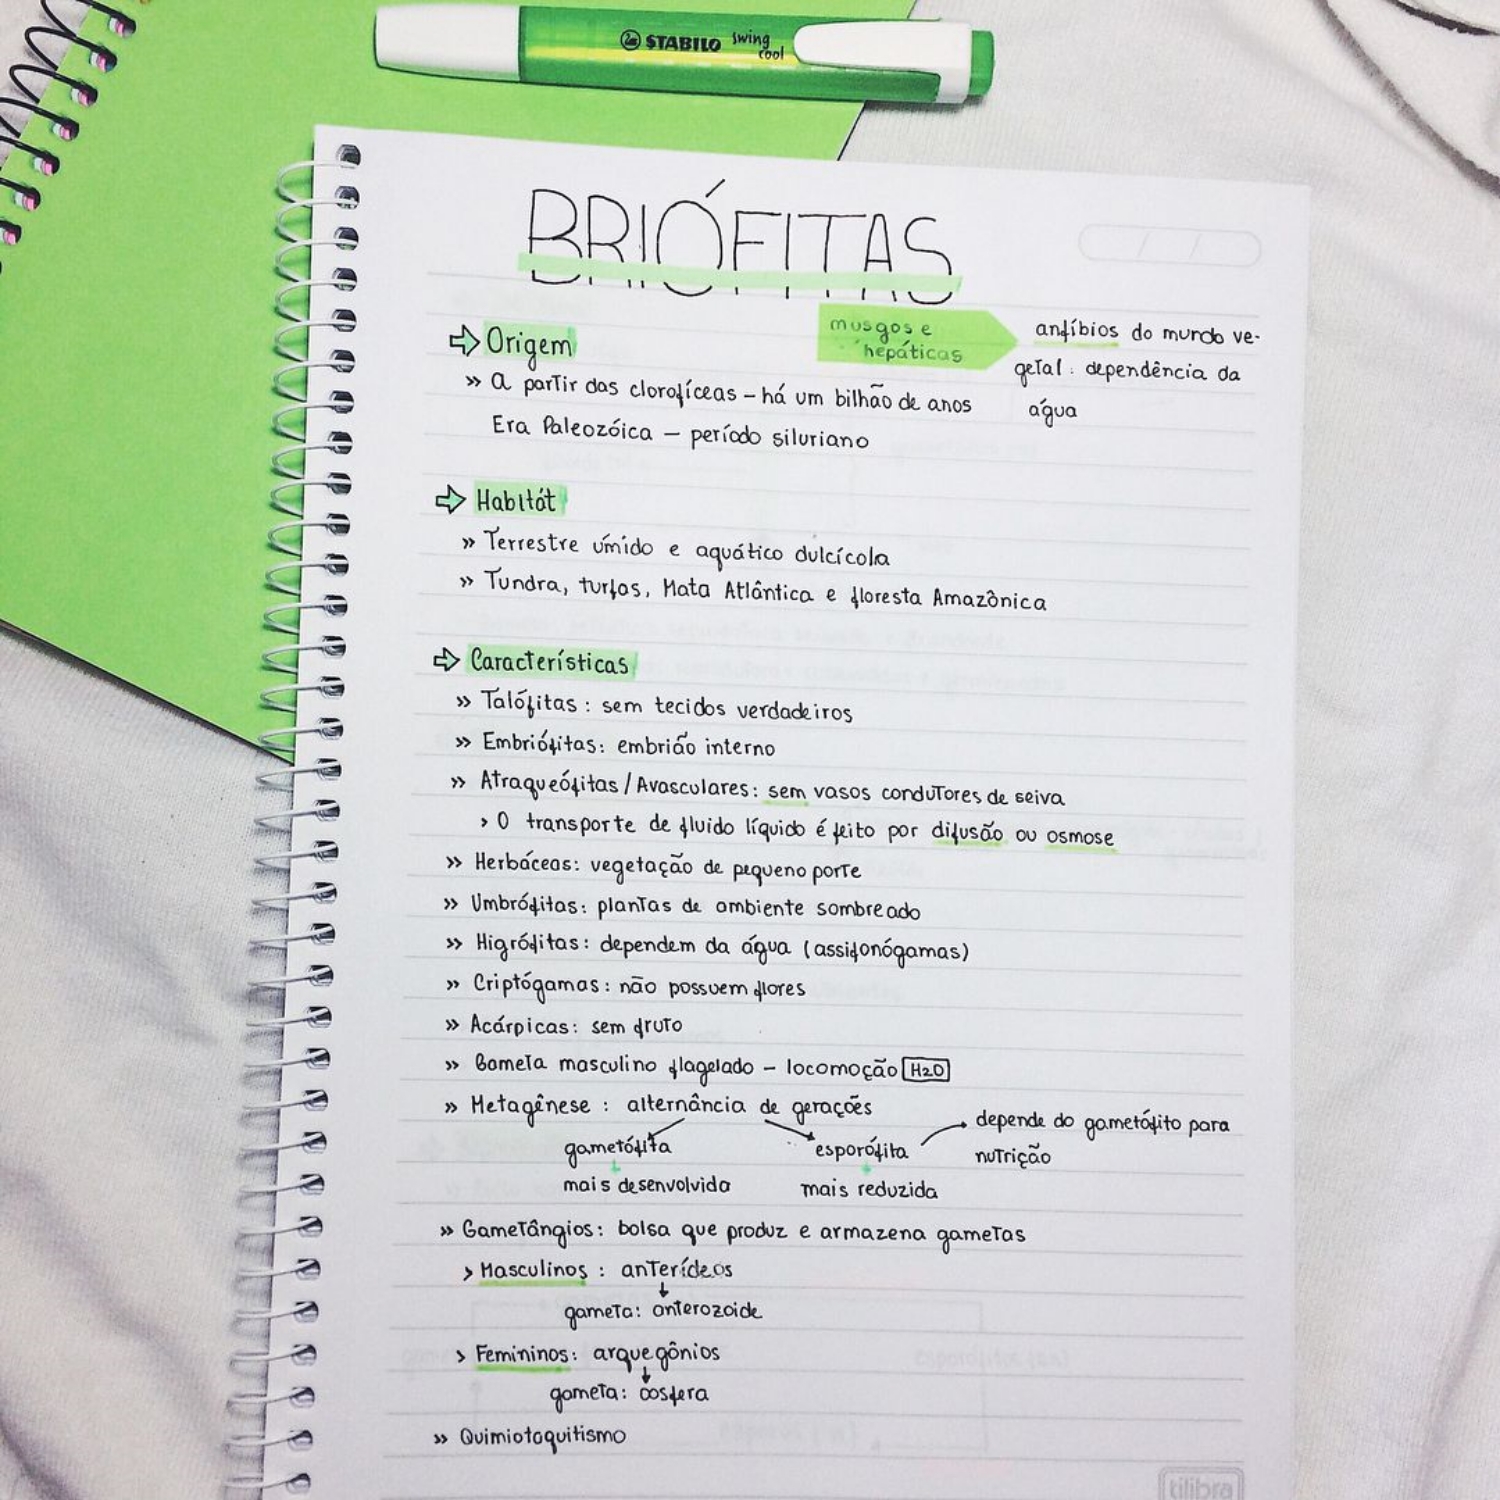 STABILO swing cool
BRIÓFITAS
⇨ Origem
musgos e
hepáticas
anfíbios do mundo ve-
getal: dependência da
água
» A partir das clorofíceas – há um bilhão de anos
Era Paleozóica – período siluriano
⇨ Habitát
» Terrestre úmido e aquático dulcícola
» Tundra, turfas, Mata Atlântica e floresta Amazônica
⇨ Características
» Talófitas: sem tecidos verdadeiros
» Embriófitas: embrião interno
» Atraqueófitas / Avasculares: sem vasos condutores de seiva
› O transporte de fluido líquido é feito por difusão ou osmose
» Herbáceas: vegetação de pequeno porte
» Umbrófitas: plantas de ambiente sombreado
» Higrófitas: dependem da água (assifonógamas)
» Criptógamas: não possuem flores
» Acárpicas: sem fruto
» Gameta masculino flagelado – locomoção H2O
» Metagênese: alternância de gerações
gametófita
esporófita
depende do gametófito para
nutrição
mais desenvolvida
mais reduzida
» Gametângios: bolsa que produz e armazena gametas
› Masculinos: anterídeos
gameta: anterozoide
› Femininos: arquegônios
gameta: oosfera
» Quimiotaquitismo
tilibra